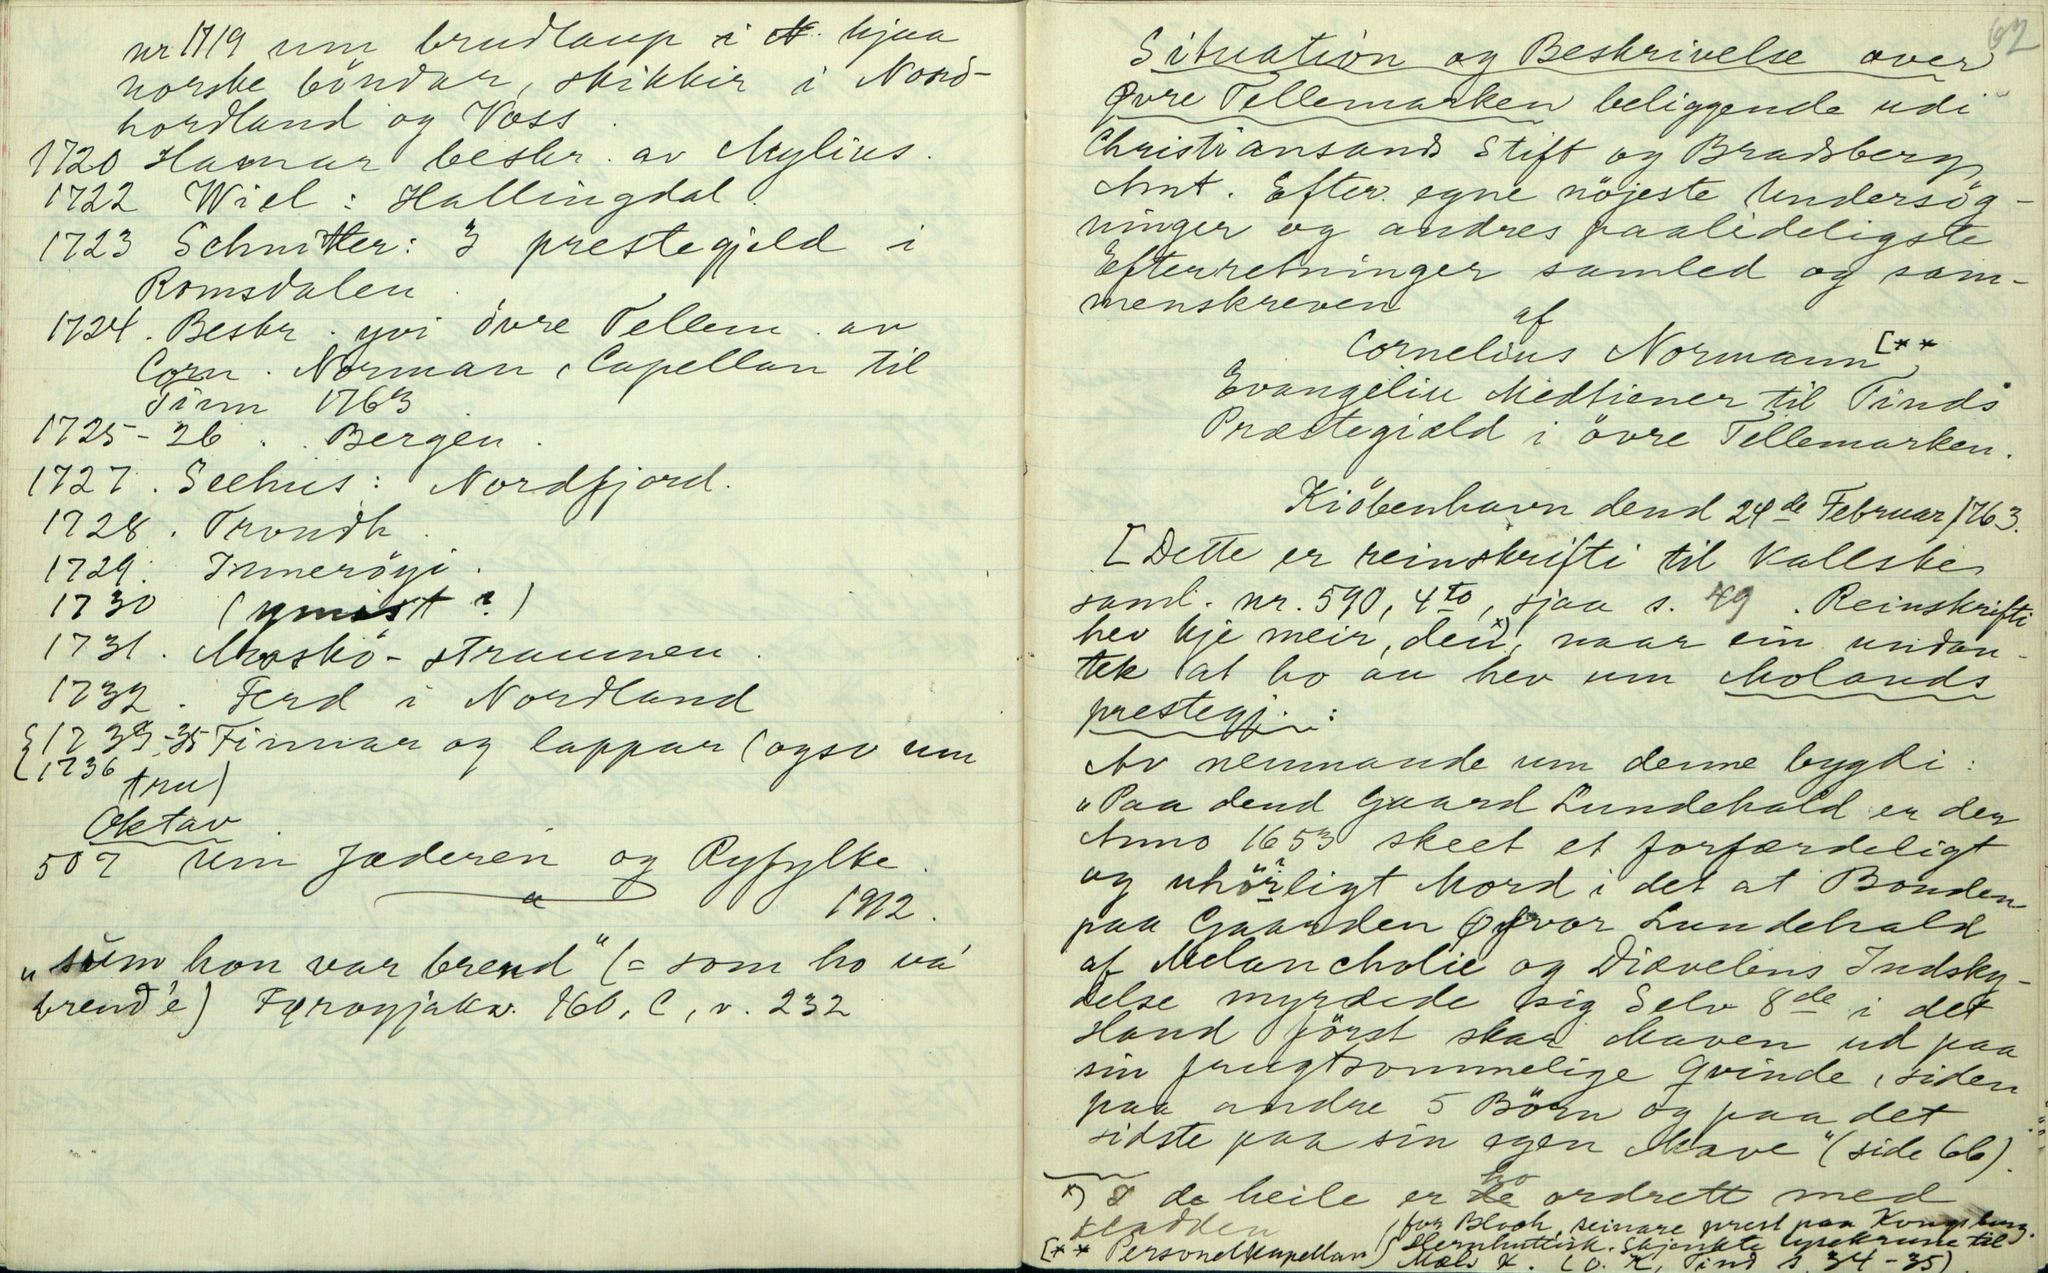 nr 1719 um brudlaup i N. hjaa
norske böndar, skikkir i Nord-
hordland og Voss.
1720 Hamar beskr. av Mylius.
1722 Wiel: Hallingdal.
1723 Schnitter: 3 prestegjeld i
Romsdalen.
1724. Beskr. yvi övre Tellem. av
Corn. Norman, Capellan til
Tinn 1763
1725-26. Bergen.
1727. Seehus: Nordfjord.
1728. Trondh.
1729. Inneröyi.
1730 (ymist?)
1731. Moskö-straumen.
1732. Ferd i Nordland
1734-35 Finnar og lappar (ogso um
1736 tru)
Oktav.
507 Um Jæderen og Ryfylke.
1912.
„sum hon var brend" (= som ho va'
brend'e) Færoyjakv. 160, C, v. 232
62
Situation og Beskrivelse over
Øvre Tellemarken beliggende udi
Christiansands Stift og Bradsberg
Amt. Efter egne nöjeste Undersög-
ninger og andres paalideligste
Efterretninger samled og sam-
menskreven
af
Cornelius Normann [**
Evangelii Medtiener til Tinds
Præstegiæld i övre Tellemarken.
Kiöbenhavn dend 24de Februar 1763.
[Dette er reinskrifti til Kallske
saml. nr. 590, 4to, sjaa s. 49. Reinskrifti
hev kje meir, den x), naar ein undan-
tek at ho au hev um Molands
prestegj.:
Av nemnande um denne bygdi:
„Paa dend Gaard Lundehald er der
Anno 1653 skeet et forfærdeligt
og uhörligt Mord i det at Bonden
paa Gaarden Øyvor Lundehald
af Melancholie og Diævelens Indsky-
delse myrdede sig Selv 8de i det
Hand först skar Maven ud paa
sin frugtsommelige Qvinde, siden
paa andre 5 Börn og paa det
sidste paa sin egen Mave" (side 66).
x) I da heile er ho ordrett med
kladden
[** Personelkapellan for Bloch, seinare prest paa Kongsberg.
Hernhuttisk. Skjenkte lysekrune til
Mæls K. (O. K, Tind s. 34-35)